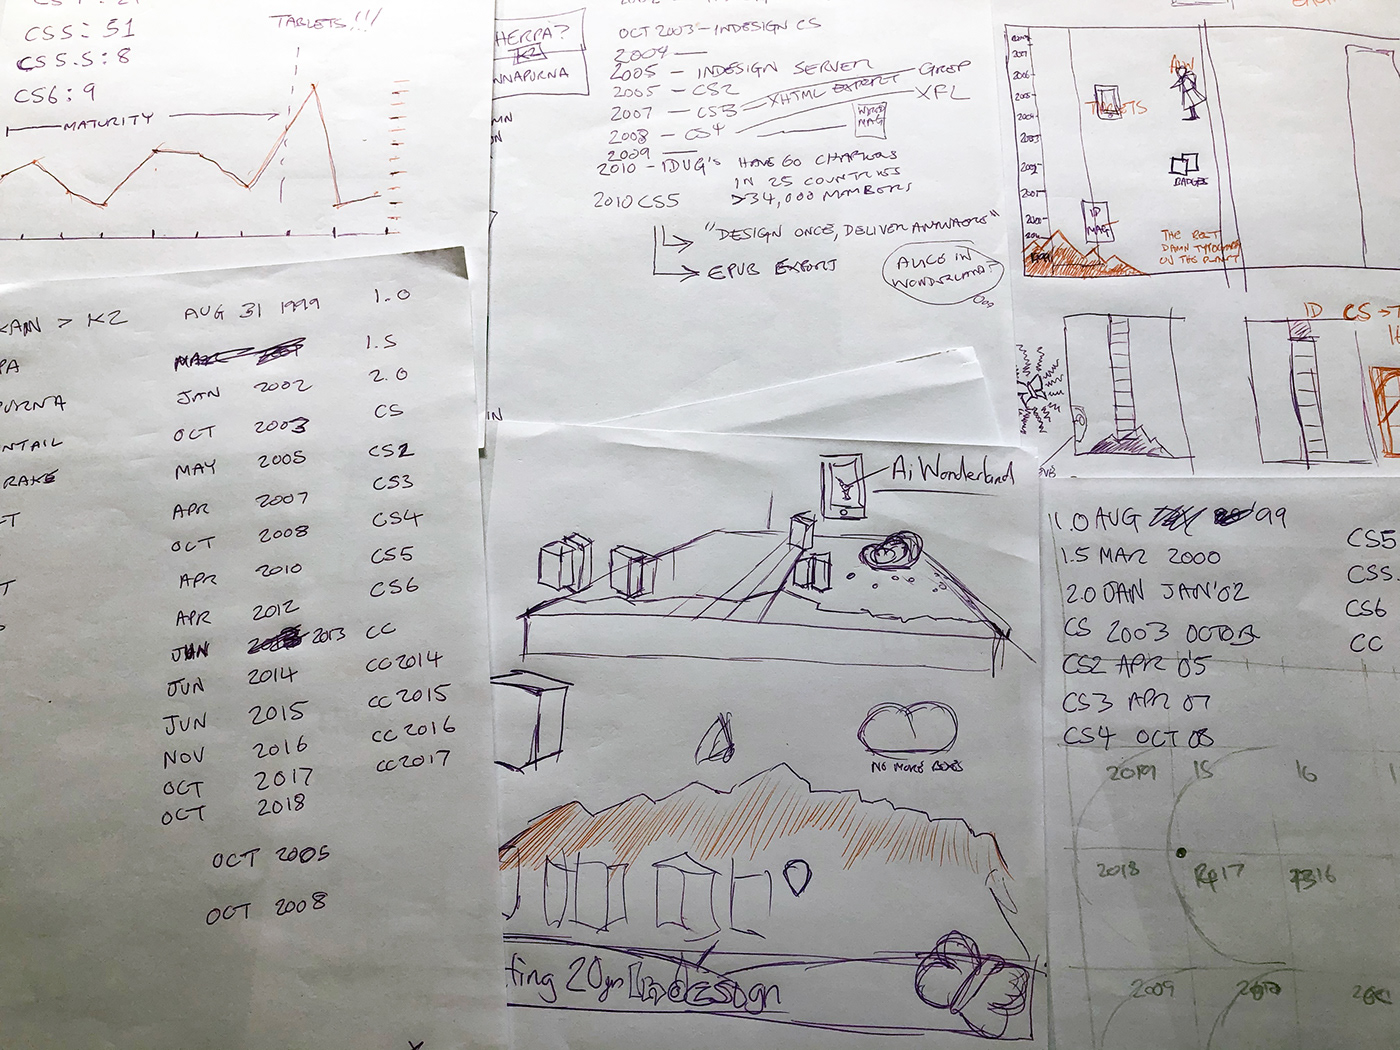 CS5: 51
CS5.5: 8
CS6: 9
TABLETS!!!
MATURITY
HERPA?
K2
NNAPURNA
OCT 2003 - INDESIGN CS
2004 —
2005 - INDESIGN SERVER
2005 - CS2
2007 - CS3 XHTML EXPORT GREP
2008 - CS4 XFL
2009 —
2010 - IDUG'S HAVE 60 CHAPTERS
IN 25 COUNTRIES
>34,000 MEMBERS
2010 CS5
"DESIGN ONCE, DELIVER ANYWHERE"
EPUB EXPORT
ALICE IN
WONDERLAND?
TABLETS
BADGES
ID
MAG
THE BEST
DAMN TYPOGRAPHY
ON THE PLANET
ID CS →
> K2 AUG 31 1999 1.0
PA 1.5
PURNA JAN 2002 2.0
NTAIL OCT 2003 CS
RAKE MAY 2005 CS2
APR 2007 CS3
OCT 2008 CS4
APR 2010 CS5
APR 2012 CS6
JUN 2013 CC
JUN 2014 CC2014
JUN 2015 CC2015
NOV 2016 CC2016
OCT 2017 CC2017
OCT 2018
OCT 2005
OCT 2008
IN
Ai Wonderland
NO MORE BOXES
ting 20yr InDesign
1.0 AUG '99
1.5 MAR 2000
2.0 JAN JAN'02
CS 2003 OCTOB
CS2 APR 05
CS3 APR 07
CS4 OCT 08
CS5
CS5
CS6
CC
2019 15 16
2018 17 16
2009